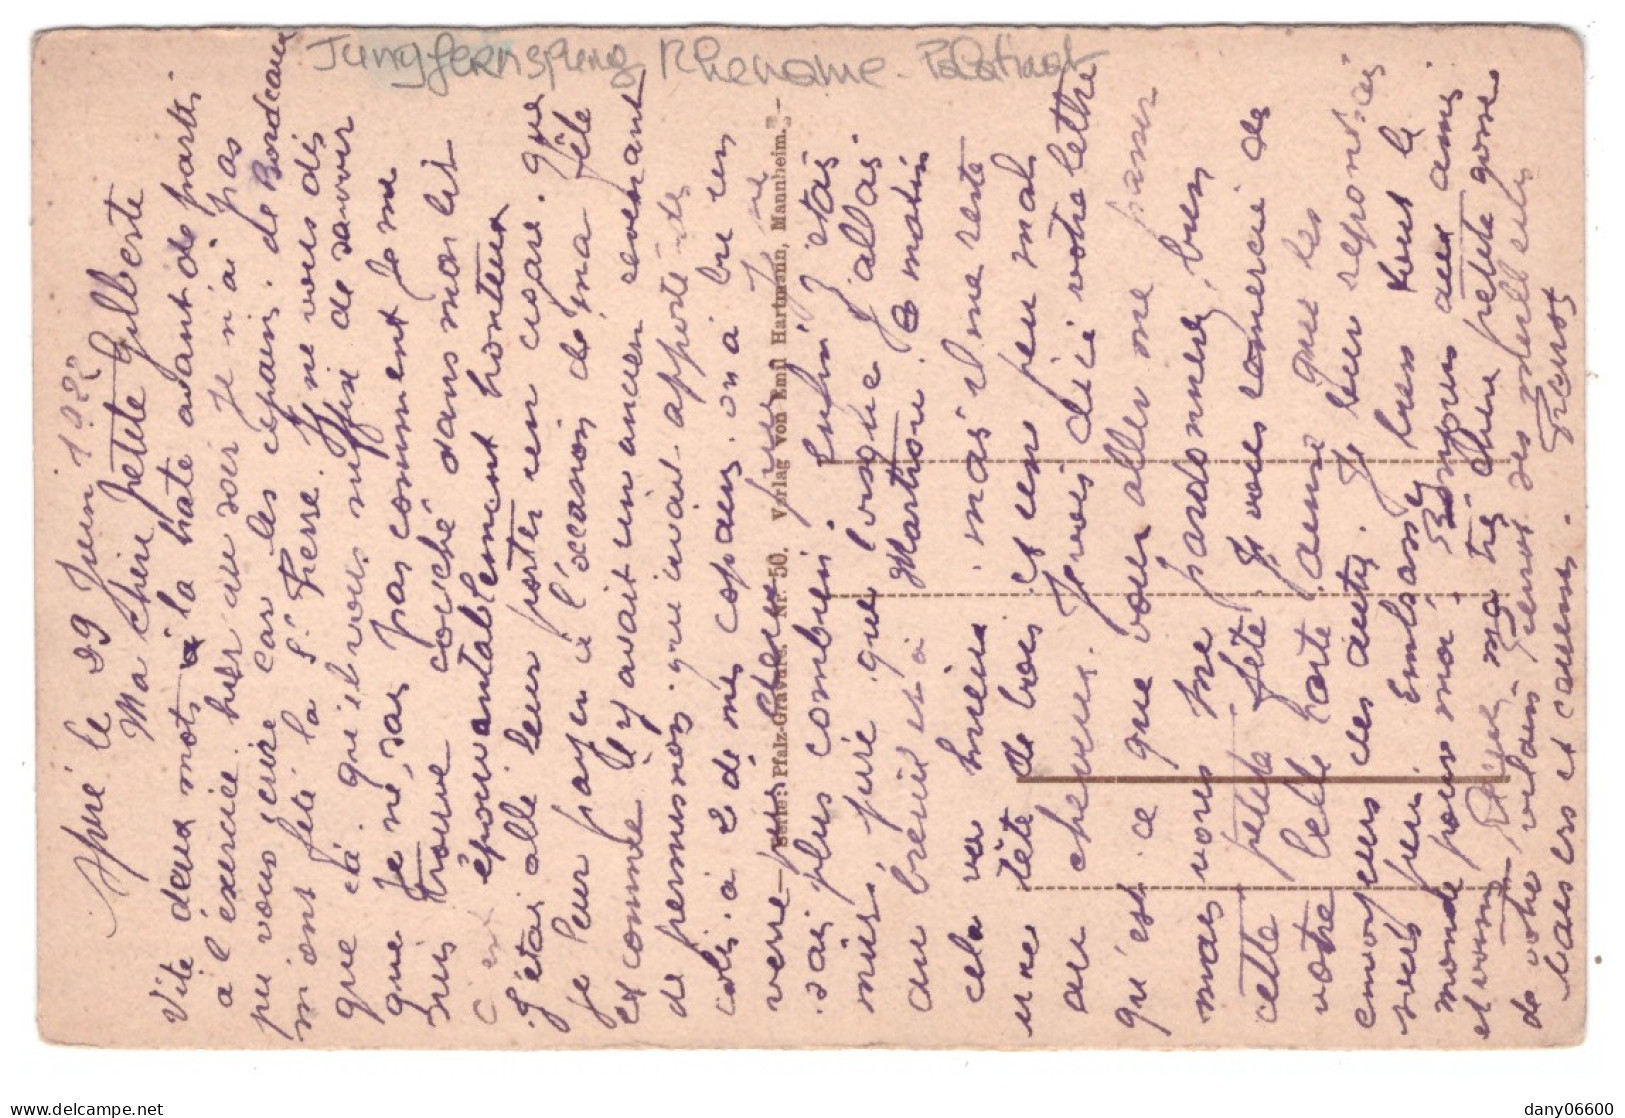 Jungfernsprung Rhenanie - Palatinat
le 29 Juin 1922
Ma chère petite Gilberte
Vite deux mots à la hate avant de partir
à l'exercice hier au soir je n'ai pas
pu vous écrire car les copains de Bordeaux
m'ont fété la St Pierre. Je ne vous dis
que çà qu'il vous suffise de savoir
que je ne sais pas comment je me
suis trouvé couché dans mon lit
c'est épouvantablement honteux
J'étais allé leur porter un cigare que
je leur payer à l'occasion de ma fête
et comme il y avait un ancien revenant
de permission qui avait apporté des
colis à 2 de mes copains on a bu un
verre puis
Serie: Pfalz-Gravure. Nr. 50. Verlag von Emil Hartmann, Mannheim.
sais plus combien. Enfin j'étais
mûr, puré que lorsque j'allais
au breuil et à Martrou. Ce matin
cela va mieux mais il me reste
une tête de bois et un peu mal
au cheveux. Je vois d'ici votre lettre
qu'est ce que vous aller me passer
mais vous me pardonnerez bien
cette petite fête. Je vous remercie de
votre belle carte j'aime que les
envoyeurs des autres. Je leur répondrais
sous peu. Embrassez bien tout le
monde pour moi. Bonjour aux amis
et vous ma très chère petite gosse
de votre vilain Pierrot des meilleures
caresses et calines. Pierrot
delcampe.net
dany06600